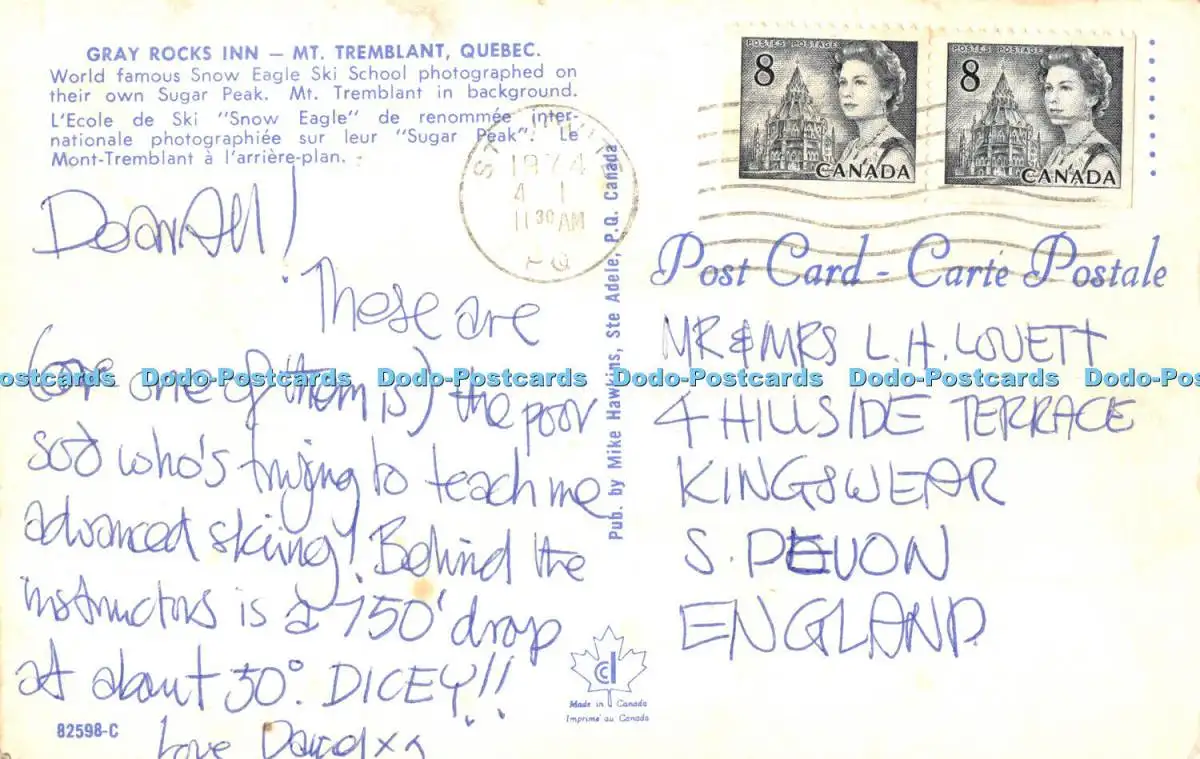 GRAY ROCKS INN — MT. TREMBLANT, QUEBEC.
World famous Snow Eagle Ski School photographed on
their own Sugar Peak. Mt. Tremblant in background.
L'Ecole de Ski "Snow Eagle" de renommée inter-
nationale photographiée sur leur "Sugar Peak". Le
Mont-Tremblant à l'arrière-plan.
Dear All!
These are
(or one of them is) the poor
sod who's trying to teach me
advanced skiing! Behind the
instructors is a 750' drop
at about 50°. DICEY!!
Love David xx
82598-C
1974
4 1
11 30 AM
PQ
Pub. by Mike Hawkins, Ste Adele, P.Q. Canada
Made in Canada
Imprimé au Canada
POSTES POSTAGE
8
CANADA
POSTES POSTAGE
8
CANADA
Post Card - Carte Postale
MR & MRS L.H. LOVETT
4 HILLSIDE TERRACE
KINGSWEAR
S. DEVON
ENGLAND.
ostcards Dodo-Postcards Dodo-Postcards Dodo-Postcards Dodo-Postcards Dodo-Pos